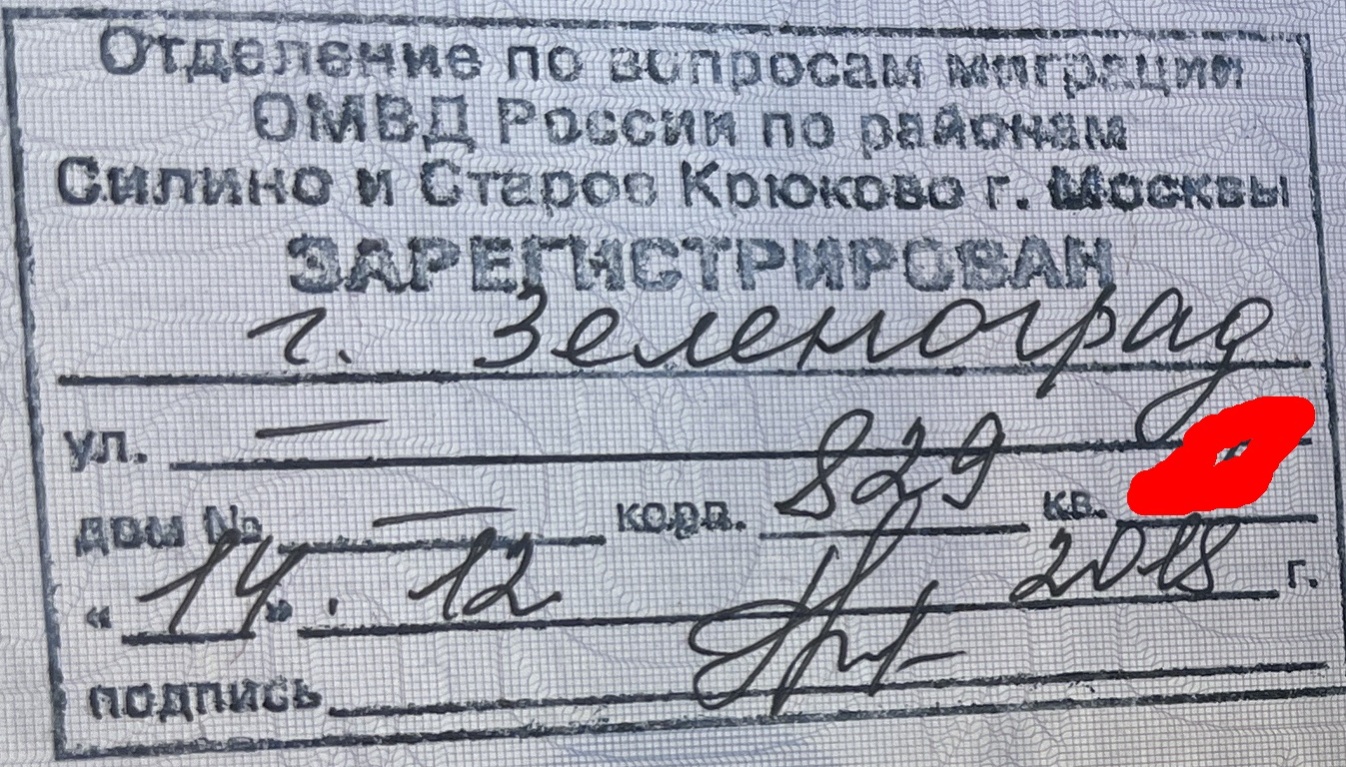 Отделение по вопросам миграции
ОМВД России по районам
Силино и Старое Крюково г. Москвы
ЗАРЕГИСТРИРОВАН
г. Зеленоград
ул. —
дом № — корп. 829 кв.
« 14 » . 12 2018 г.
подпись